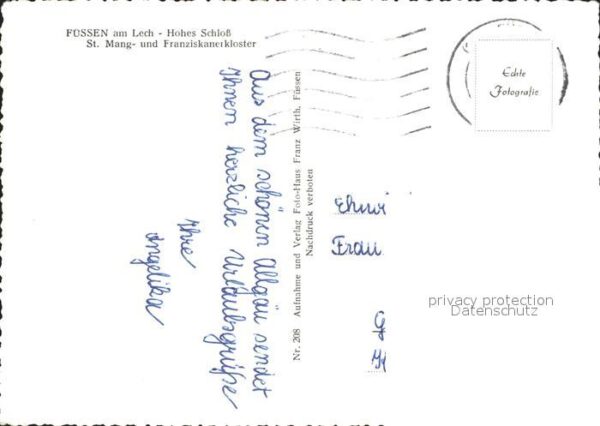 FÜSSEN am Lech - Hohes Schloß
St. Mang- und Franziskanerkloster
Echte
Fotografie
Aus dem schönen Allgäu sendet
Ihnen herzliche Urlaubsgrüße
Ihre
Angelika
Nr. 208 Aufnahme und Verlag Foto-Haus Franz Wirth, Füssen
Nachdruck verboten
Frau
privacy protection
Datenschutz